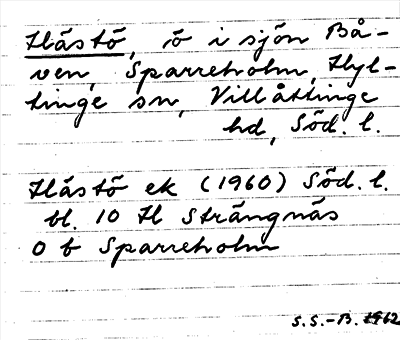 Hästö, ö i sjön Bå-
ven, Sparreholm, Hyl-
tinge sn, Villåttinge
hd, Söd. l.
Hästö ek (1960) Söd. l.
bl. 10 H Strängnäs
0 b Sparreholm
S.S.-B. 1962